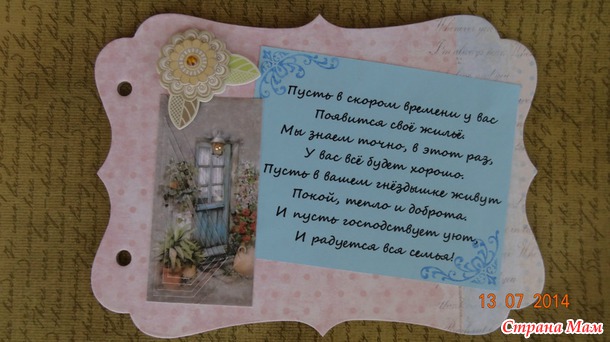 Пусть в скором времени у вас
Появится своё жильё.
Мы знаем точно, в этот раз,
У вас всё будет хорошо.
Пусть в вашем гнёздышке живут
Покой, тепло и доброта.
И пусть господствует уют,
И радуется вся семья!
13 07 2014
Страна Мам